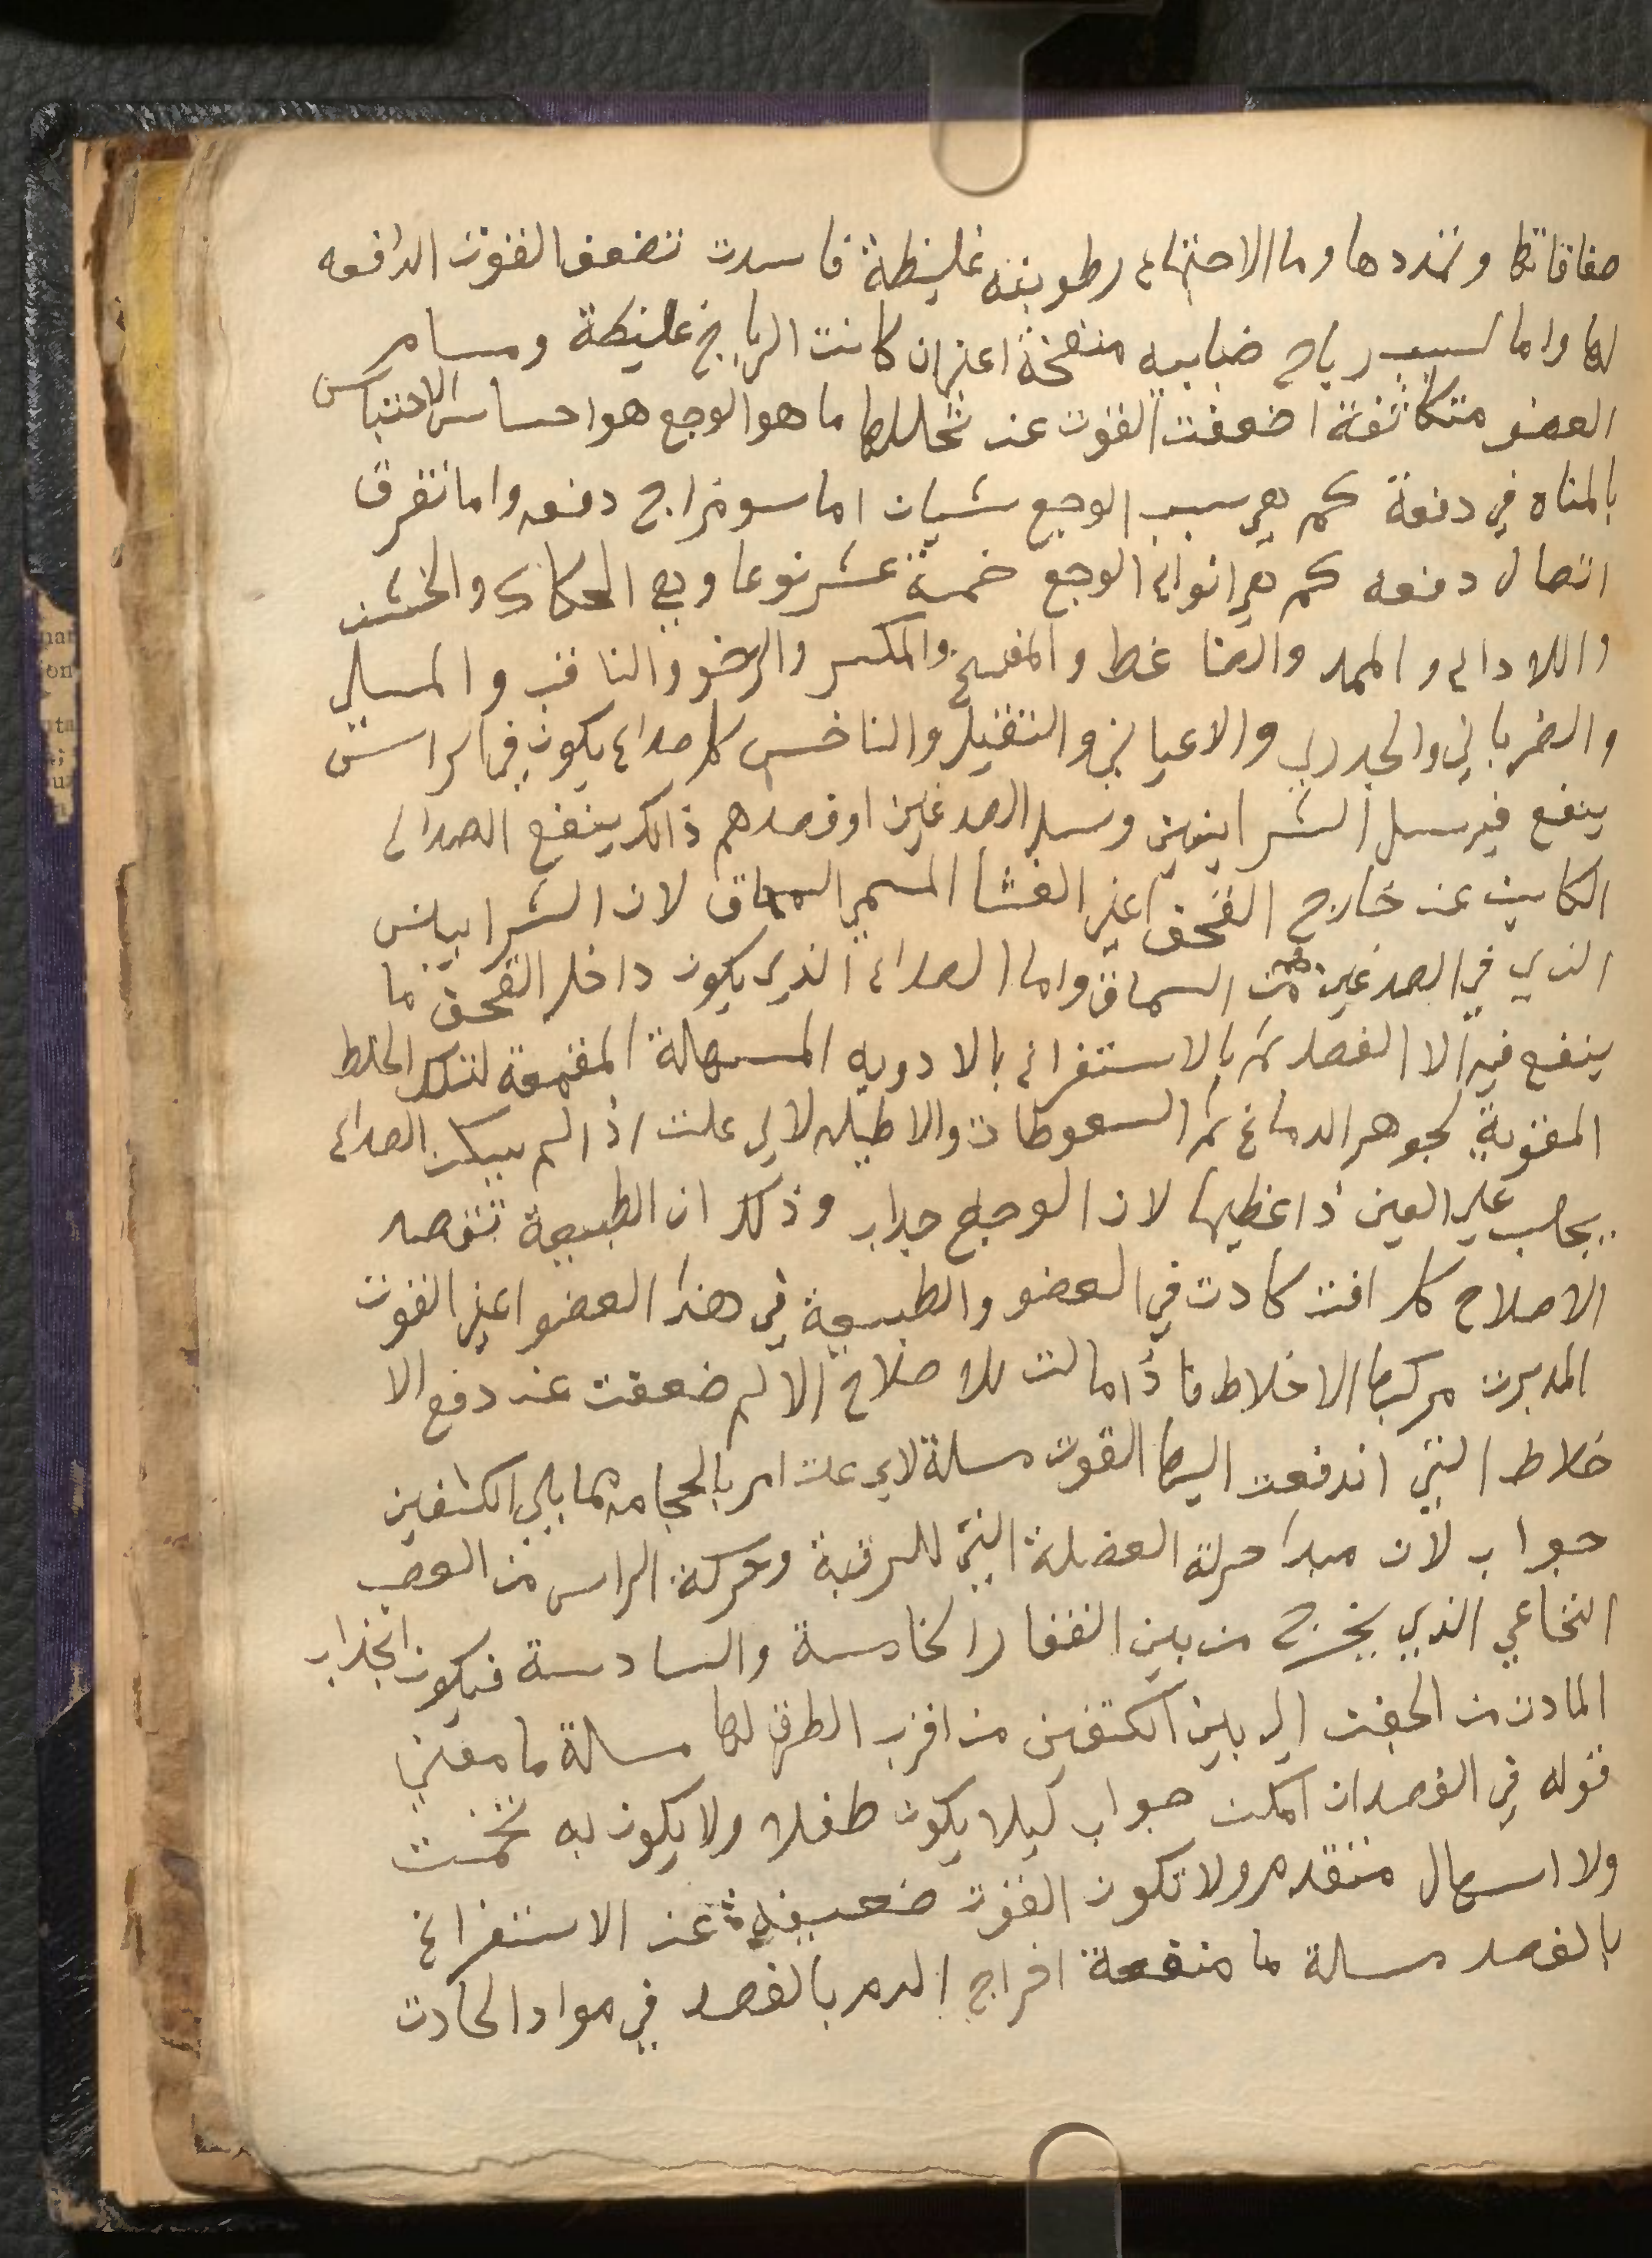 صفاقاتها وتمددها وما الاجتماع رطوبته غليظة فاسدت تضعف القوت الدافعه
لها واما لسبب رياح ضبابيه منفخة اعني ان كانت الرياح غليظة ومسام
العضو متكاثفة اضعفت القوت عند تحللها ما هو الوجع هو احساس الاحتباس
بالمناه في دفعة كم هي سبب الوجع شيان اما سو مزاج دفعه واما تفرق
اتصال دفعه كم هي انواع الوجع خمسة عشر نوعا وهي الحكاك والخشن
واللاداع والممد والضاغط والمفسخ والمكسر والرخو والثاقب والمسلي
والضرباني والخدري والاعياني والثقيل والناخس كل صداع يكون في الراس
ينفع فيه سل الشراينين وسل الصدغين او فصدهم ذالك ينفع الصداع
الكاين عن خارج القحف اعني الغشا المسمى السمحاق لان الشرايين
الذي في الصدغين من السماق واما الصداع الذي يكون داخل القحف ما
ينفع فيه الا الفصد ثم بالاستفراغ بالادويه المسهلة المقمعة لتلك الخلط
المقوية لجوهر الدماغ ثم السعوطات والاطيله لاي علت اذا لم يسكن الصداع
يجلب على العين داعظيما لان الوجع جداب وذلك ان الطبيعة تقصد
الاصلاح كل افت كادت في العضو والطبيعة في هذا العضو اعني القوت
المدبرت مركبها الاخلاط فاذا مالت للاصلاح الالم ضعفت عند دفع الا
خلاط التي اندفعت اليها القوت مسلة لاي علت امر بالحجامه مما يلي الكتفين
جواب لان مبدا حركة العضلة التي للرقبة وحركة الراس من العصب
النخاعي الذي يخرج من بين الفقار الخامسة والسادسة فيكون انجذاب
المادت من الجهت الى بين الكتفين من اقرب الطرق لها مسالة ما معني
قوله في الفصد ان امكن جواب كيلا يكون طفلا ولا يكون به تخمت
ولا اسهال متقدم ولا تكون القوت ضعيفة عند الاستفراغ
بالفصد مسالة ما منفعة اخراج الدم بالفصد في مواد الحادت